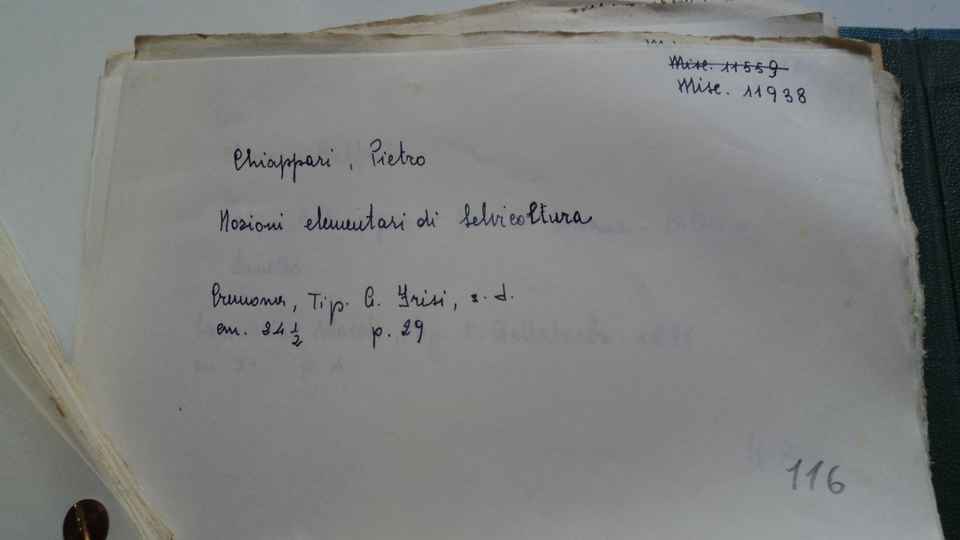 Misc. 11559
Misc. 11938
Chiappari, Pietro
Nozioni elementari di selvicoltura
Cremona, Tip. G. Frisi, s. d.
cm. 24 1/2 p. 29
116